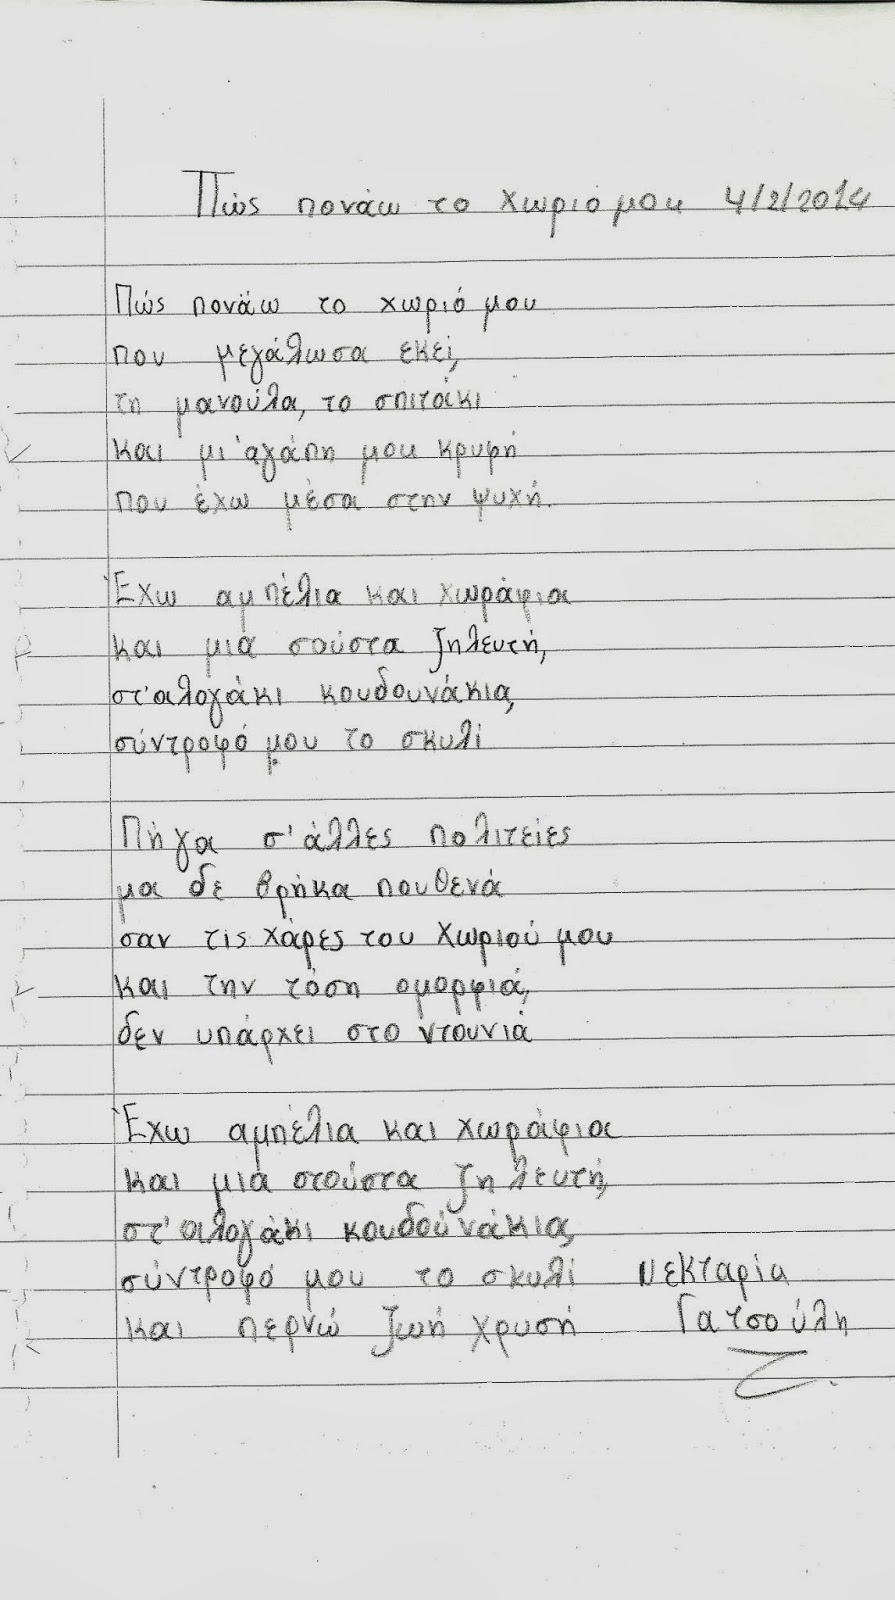 Πώς πονάω το χωριό μου 4/2/2014
Πώς πονάω το χωριό μου
που μεγάλωσα εκεί,
τη μανούλα, το σπιτάκι
και μι'αγάπη μου κρυφή
που έχω μέσα στην ψυχή.
Έχω αμπέλια και χωράφια
και μια σούστα ζηλευτή,
στ'αλογάκι κουδουνάκια,
σύντροφό μου το σκυλί
Πήγα σ'άλλες πολιτείες
μα δε βρήκα πουθενά
σαν τις χάρες του χωριού μου
και την τόση ομορφιά,
δεν υπάρχει στο ντουνιά
Έχω αμπέλια και χωράφια
και μια στούστα ζηλευτή,
στ'αλογάκι κουδούνάκια,
σύντροφό μου το σκυλί Νεκταρία
και περνώ ζωή χρυσή Γατσούλη